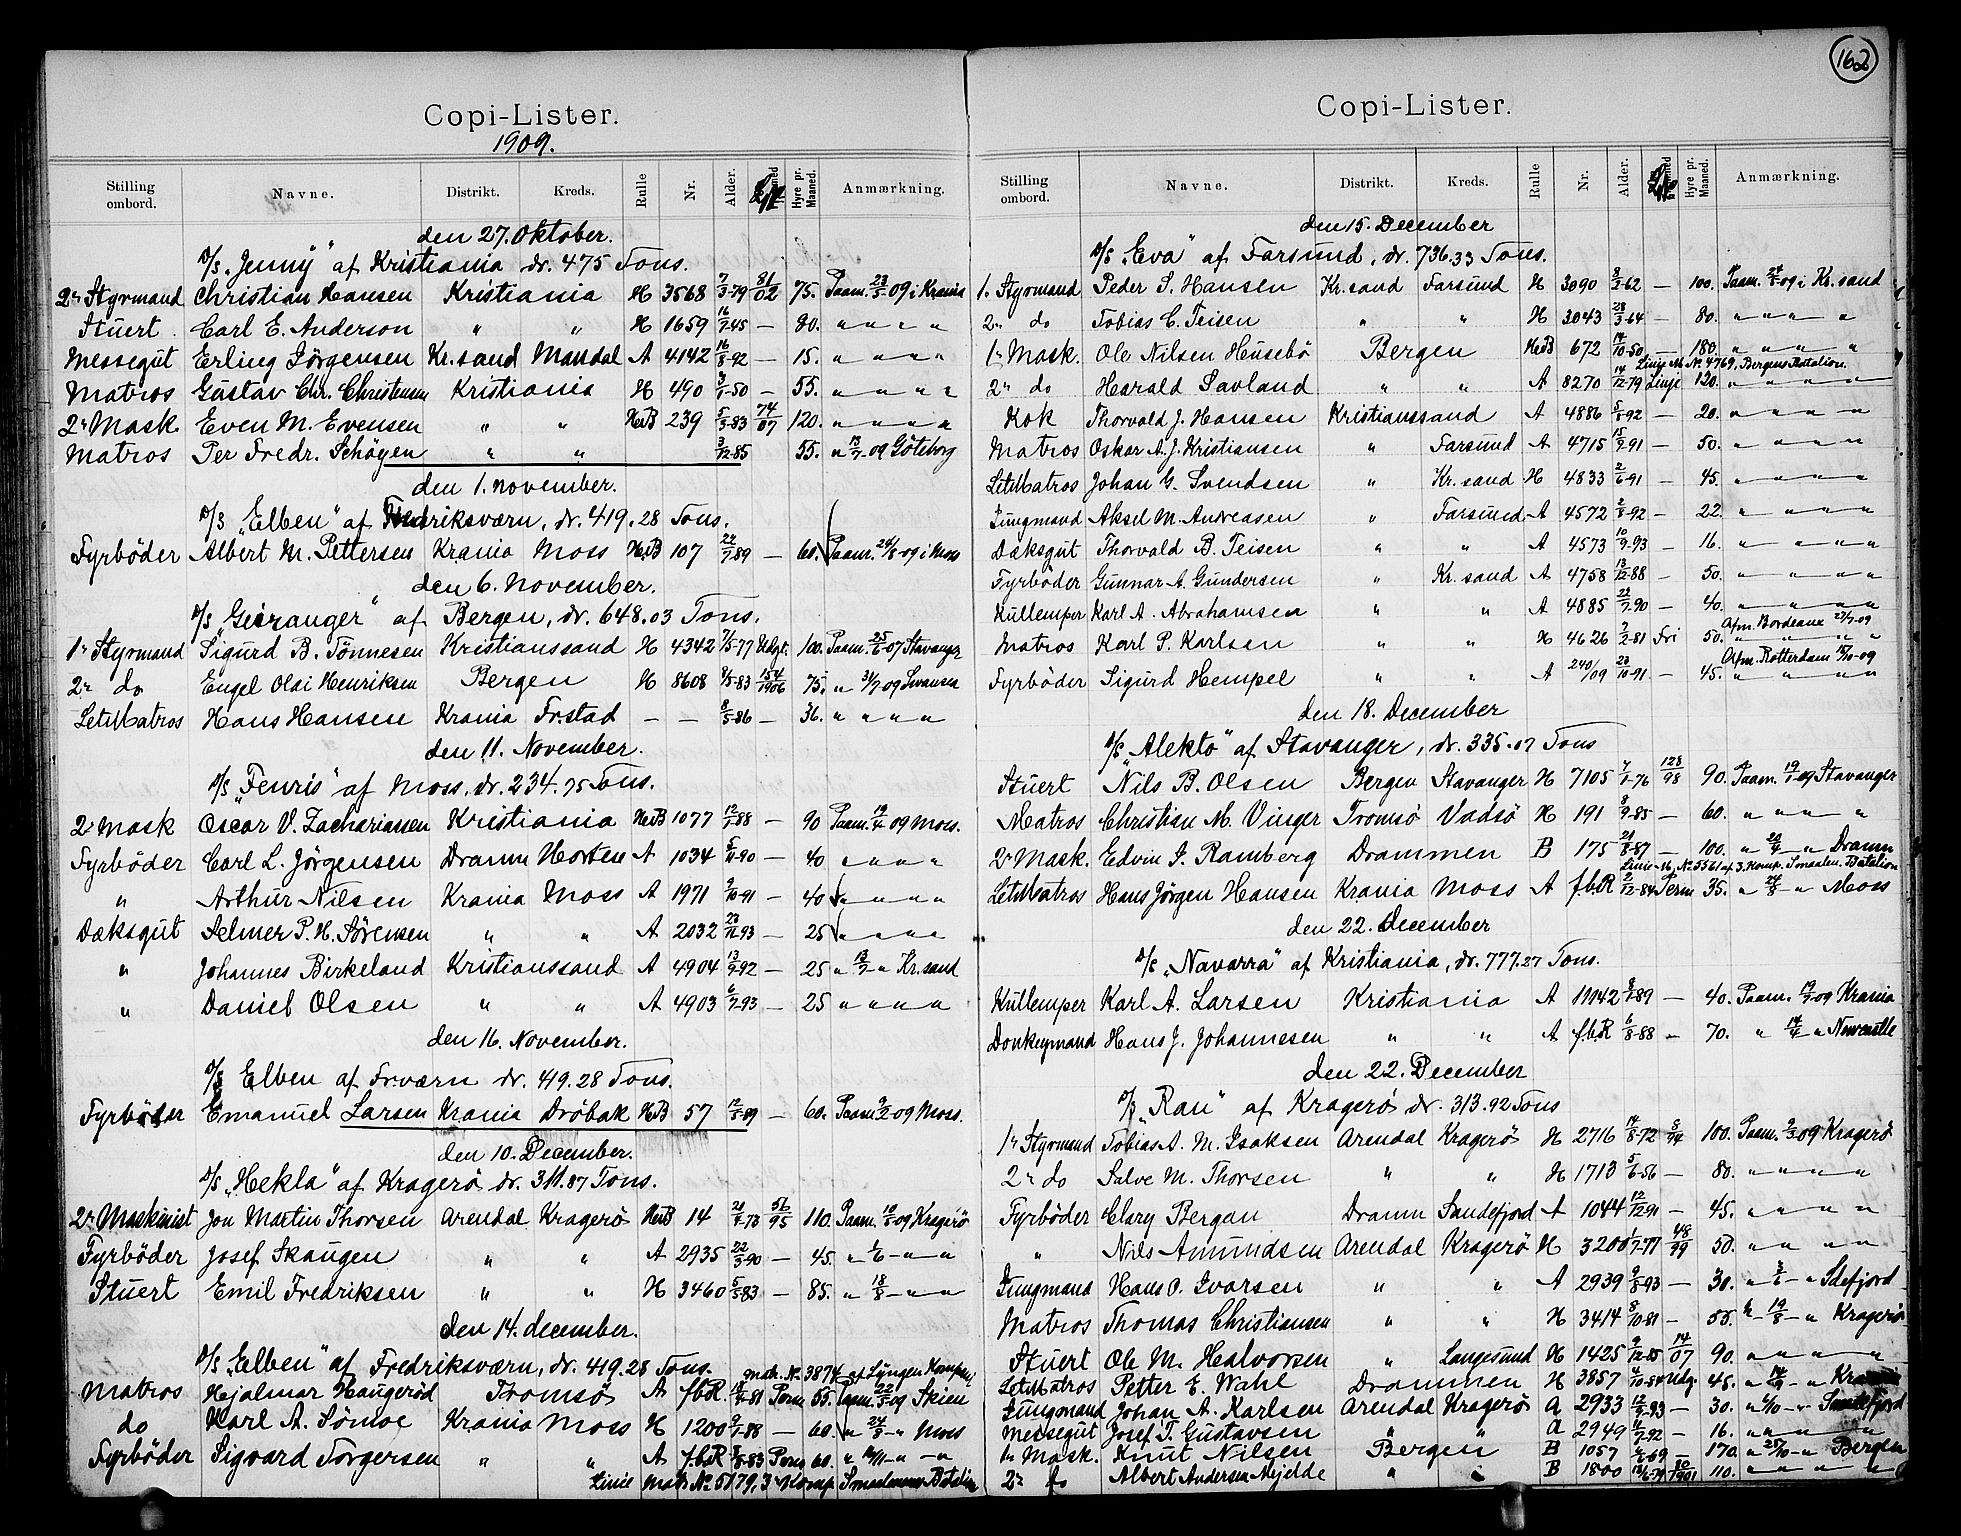 162
Copi-Lister.
1909.
Stilling ombord. Navne. Distrikt. Kreds. Rulle Nr. Alder. Hyre pr. Maaned. Anmærkning.
den 27. Oktober.
D/S „Jenny" af Kristiania dr. 475 Tons.
2n Styrmand Christian Hansen Kristiania H 3568 7/3-79 81/02 75. Paam. 23/3-09 i Krania
Stuert Carl E. Anderson „ „ H 1659 16/7-45 — 80. „ „ „ „
Messegut Erling Jörgensen Kr.sand Mandal A 4142 16/8-92 — 15. „ „ „ „
Matros Gustav Chr. Christensen Kristiania H 490 -50 — 55. „ „ „ „
2n Mask. Even M. Evensen „ „ HB 239 5/3-83 74/07 120. „ „ „ „
Matros Per Fredr. Schöyen „ „ 3/12-85 55. „ 13/7-09 Göteborg
den 1. November.
D/S „Elben" af Fredriksværn, dr. 419.28 Tons.
Fyrböder Albert M. Pettersen Krania Moss HB 107 22/7-89 — 60. Paam. 24/8-09 i Moss
den 6. November.
D/S „Geiranger" af Bergen, dr. 648.03 Tons.
1n Styrmand Sigurd B. Tönnesen Kristianssand H 4342 7/5-77 Udgt. 100. Paam. 25/6-07 Stavanger
2n do Engel Olai Henriksen Bergen H 8608 9/5-83 154/1906 75. „ 31/7 09 Swansea
LetMatros Hans Hansen Krania Fr.stad — — 8/5-86 — 36. „ „ „ „
den 11. November.
D/S „Fenris" af Moss, dr. 234.75 Tons.
2n Mask Oscar V. Zachariassen Kristiania HB 1077 12/7-88 — 90 Paam. 19/4 09 Moss.
Fyrböder Carl L. Jörgensen Dramn Horten A 1034 5/11-90 — 40 „ „ „ „
„ Arthur Nilsen Krania Moss A 1971 9/10-91 — 40 „ „ „ „
Dæksgut Selmer P. H. Sörensen „ „ A 2032 23/11-93 — 25 „ „ „ „
„ Johannes Birkeland Kristianssand A 4904 13/9-92 — 25 „ 13/7 „ Kr.sand
„ Daniel Olsen „ „ A 4903 6/7-93 — 25 „ „ „ „
den 16. November.
D/S Elben af Fr.værn dr. 419.28 Tons.
Fyrböder Emanuel Larsen Krania Dröbak HB 57 12/5-89 — 60. Paam. 9/2 09 Moss.
den 10. December.
D/S „Hekla" af Kragerö dr. 311.87 Tons.
2n Maskinist Jon Martin Thorsen Arendal Kragerö HB 14 20/9-73 51/95 110. Paam. 10/5 09 Kragerö
Fyrböder Josef Skaugen „ „ A 2935 22/3-90 — 45. „ 1/6 „ „
Stuert Emil Fredriksen „ „ H 3460 5/5-83 — 85. „ 18/8 „ „
den 14. december.
D/S „Elben" af Fredriksværn, dr. 419.28 Tons.
matr. Nr. 3874 af Lyngen Kompagni
Matros Hjalmar Haugeröd Tromsö A fbR. -81 Perm 55. Paam. 22/5-09 Skien
do Karl A. Sömoe Krania Moss H 1200 9/7-88 — 60. „ 24/8 „ Moss
Fyrböder Sigvard Torgersen „ „ A fbR -83 Perm 60. „ „ „
Linie matr No 5179, 3die Komp Smaalenenes Batalion
Copi-Lister.
Stilling ombord. Navne. Distrikt. Kreds. Rulle Nr. Alder. Hyre pr. Maaned. Anmærkning.
den 15. December
D/S „Eva" af Farsund, dr. 736.33 Tons.
1. Styrmand Peder S. Hansen Kr.sand Farsund H 3090 8/2-62 — 100. Paam. 24/5-09 i Kr.sand
2n do Tobias C. Teisen „ „ H 3043 28/3-64 — 80. „ „ „ „
1n Mask. Ole Nilsen Husebö Bergen HB 672 14/10-50 — 180. „ „ „ „
Linje M. Nr. 4769, Bergens Batalion.
2n do Harald Savland „ „ A 8270 14/12-79 Linje 120. „ „ „ „
Kok Thorvald J. Hansen Kristianssand A 4886 5/8-92 — 20. „ „ „ „
Matros Oskar A. J. Kristiansen „ Farsund A 4715 15/9-91 — 50. „ „ „ „
LetMatros Johan G. Svendsen „ Kr.sand H 4833 2/6-91 — 45. „ „ „ „
Jungmand Aksel M. Andreasen „ Farsund A 4572 2/8-92 — 22. „ „ „ „
Dæksgut Thorvald B. Teisen „ „ A 4573 10/9-93 — 16. „ „ „ „
Fyrböder Gunnar A. Gundersen „ Kr.sand A 4758 13/12-88 — 50. „ „ „ „
Kullemper Karl A. Abrahamsen „ „ A 4885 22/7-90 — 40. „ „ „ „
Afm. Bordeaux -09
Matros Karl P. Karlsen „ „ H 4626 7/2-81 Fri 50. „ „ „ „
Afm. Rotterdam 15/10-09
Fyrböder Sigurd Hempel „ „ A 240/09 20/10-91 — 45. „ „ „ „
den 18. December
D/S „Alekto" af Stavanger, dr. 335.07 Tons
Stuert Nils B. Olsen Bergen Stavanger H 7105 7/1-76 128/98 90. Paam. 19/1-09 Stavanger
Matros Christian M. Vinger Tromsö Vadsö H 191 8/9-85 — 60. „ „ „ „
2n Mask. Edvin I. Ramberg Drammen B 175 21/8-87 — 100. „ „ Dramn
Linie M. No 5561 af 3. Komp. Smaalen. Batalion
LetMatros Hans Jörgen Hansen Krania Moss A fbR 2/12-84 Perm 35. „ 24/8 „ Moss
den 22. December
D/S „Navarra" af Kristiania, dr. 777.27 Tons.
Kullemper Karl A. Larsen Kristiania A 11042 -89 — 40. Paam. 19/7-09 Krania
Donkeymand Hans J. Johannesen „ „ A fbR 6/8-88 — 70. „ 14/4 „ Newcastle
den 22. December
D/S „Ran" af Kragerö dr. 313.92 Tons
1n Styrmand Tobias A. M. Isaksen Arendal Kragerö H 2716 14/8-72 5/94 100. Paam. 9/3 09 Kragerö
2n do Salve M. Thorsen „ „ H 1713 5/6-56 — 80. „ „ „ „
Fyrböder Clary Bergan Dramn Sandefjord A 1044 12/12-91 — 45. „ „ „ „
„ Nils Amundsen Arendal Kragerö H 3200 -77 48/99 50. „ „ „ „
Jungmand Hans O. Ivarsen „ „ A 2939 9/8-93 — 30. „ 3/6 „ Sdefjord
Matros Thomas Christiansen „ „ H 3414 8/10-81 — 55. „ 19/8 „ Kragerö
Stuert Ole M. Halvorsen „ Langesund H 1425 14/07 90. „ „ „ „
LetMatros Petter E. Wahl Drammen H 3857 Udg. 45. „ 14/9 „ Krania
Jungmand Johan A. Karlsen Arendal Kragerö A 2933 12/5-93 — 30. „ 4/10 „ Sandefjord
Messegut Josef T. Gustavsen „ „ A 2949 -92 — 16. „ „ „
1n Mask. Knut Nilsen Bergen B 1057 -69 — 170. „ 25/10 „ Bergen
2n do Albert Andersen Mjelde „ „ B 1800 -79 80/1901 110. „ „ „